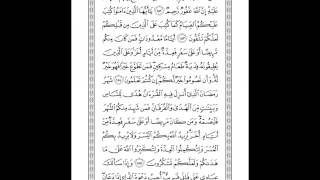 عليه إن الله غفور رحيم ١٨٢ يأيها الذين ءامنوا كتب
عليكم الصيام كما كتب على الذين من قبلكم
لعلكم تتقون ١٨٣ أياما معدودات فمن كان منكم
مريضا أو على سفر فعدة من أيام أخر وعلى الذين
يطيقونه فدية طعام مسكين فمن تطوع خيرا فهو خير
له وأن تصوموا خير لكم إن كنتم تعلمون ١٨٤ شهر
رمضان الذي أنزل فيه القرءان هدى للناس
وبينت من الهدى والفرقان فمن شهد منكم الشهر
فليصمه ومن كان مريضا أو على سفر فعدة
من أيام أخر يريد الله بكم اليسر ولا يريد بكم
العسر ولتكملوا العدة ولتكبروا الله على ما
هدىكم ولعلكم تشكرون ١٨٥ وإذا سألك
عبادي عني فإني قريب أجيب دعوة الداع إذا دعان